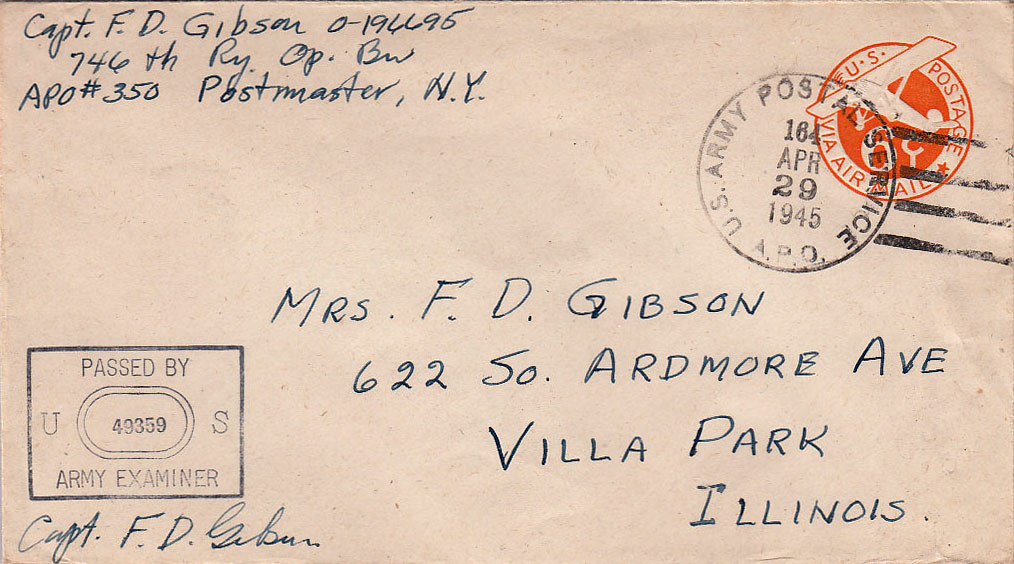 Capt. F. D. Gibson O-194695
746 th Ry. Op. Bn
APO # 350 Postmaster, N.Y.
U.S. POSTAGE
VIA AIR MAIL
6 C
U.S. ARMY POSTAL SERVICE
164
APR
29
1945
A.P.O.
MRS. F. D. GIBSON
622 SO. ARDMORE AVE
VILLA PARK
ILLINOIS.
PASSED BY
U 49359 S
ARMY EXAMINER
Capt. F. D. Gibson